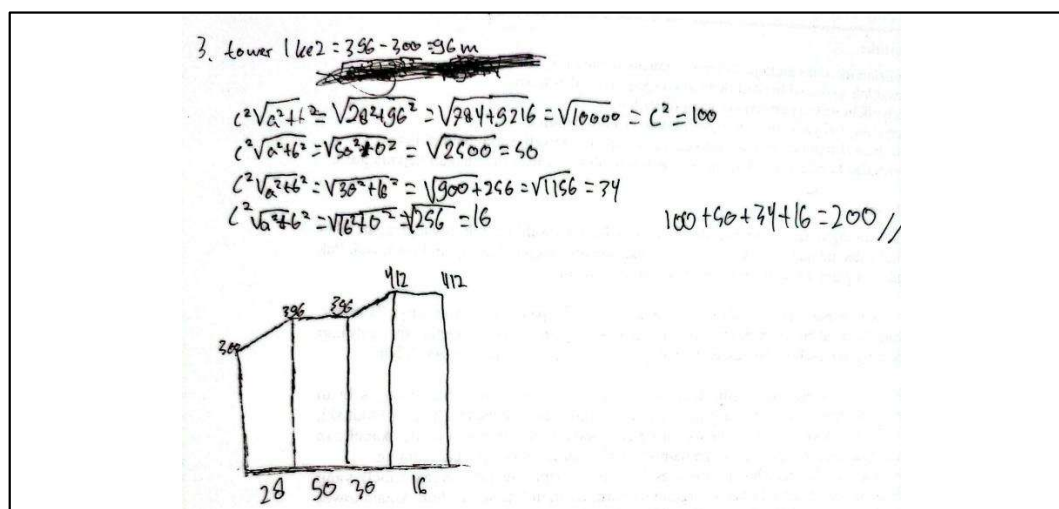 3. tower 1 ke 2 = 396 - 300 = 96 m
c² √a²+b² = √28²+96² = √784+9216 = √10000 = c² = 100
c² √a²+b² = √50²+0² = √2500 = 50
c² √a²+b² = √30²+16² = √900+256 = √1156 = 34
c² √a²+b² = √16²+0² = √256 = 16 100+50+34+16 = 200 //
412 412
396 396
300
28 50 30 16